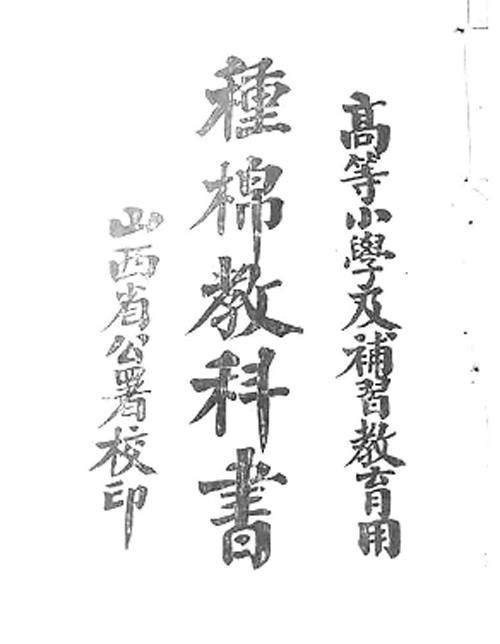 高等小學及補習教育用
種棉教科書
山西省公署校印